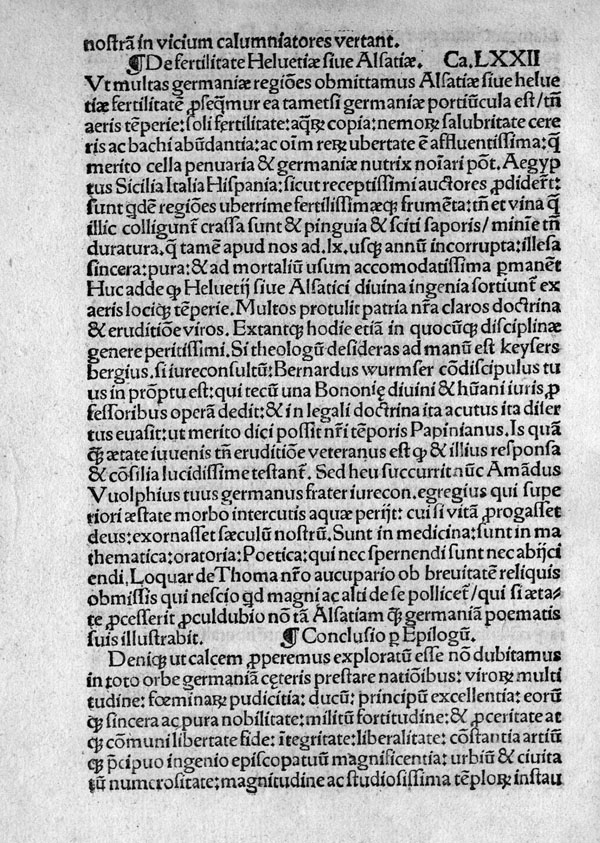 nostrã in vicium calumniatores vertant.
¶ De fertilitate Heluetiæ siue Alsatiæ. Ca. LXXII
Vt multas germaniæ regiões obmittamus Alsatiæ siue helue
tiæ fertilitatẽ ꝓseq̃mur ea tametsi germaniæ portiũcula est/tm̃
aeris tẽperie: soli fertilitate: aq̃ꝝ copia: nemoꝝ salubritate cere
ris ac bachi abũdantia: ac oĩm reꝝ ubertate ẽ affluentissima: q̃
merito cella penuaria & germaniæ nutrix noĩari põt. Aegyp
ptus Sicilia Italia Hispania: sicut receptissimi auctores ꝓdiderũt:
sunt qdẽ regiões uberrime fertilissimæq; frumẽta: tñ et vina q̃
illic colligunt̃ crassa sunt & pinguia & sciti saporis/minie tñ
duratura. q̃ tamẽ apud nos ad. lx. usq; annũ incorrupta: illesa
sincera: pura: & ad mortaliũ usum accomodatissima ꝑmanẽt
Huc adde ꝙ Heluetij siue Alsatici diuina ingenia sortiunt̃ ex
aeris lociq; tẽperie. Multos protulit patria nr̃a claros doctrina
& eruditiõe viros. Extantq; hodie etiã in quocũq; disciplinæ
genere peritissimi. Si theologũ desideras ad manũ est keysers
bergius. si iureconsultũ: Bernardus wurmser cõdiscipulus tu
us in prõptu est: qui tecũ una Bononię diuini & hũani iuris ꝓ
fessoribus operã dedit: & in legali doctrina ita acutus ita diser
tus euasit: ut merito dici possit nr̃i tẽporis Papinianus. Is quã
q; ætate iuuenis tm̃ eruditiõe veteranus est ꝙ & illius responsa
& cõsilia lucidissime testant̃. Sed heu succurrit nũc Amãdus
Vuolphius tuus germanus frater iurecon. egregius qui supe
riori æstate morbo intercutis aquæ perijt: cui si vitã ꝓrogasset
deus: exornasset sæculũ nostrũ. Sunt in medicina: sunt in ma
thematica: oratoria: Poetica: qui nec spernendi sunt nec abijci
endi. Loquar de Thoma nr̃o aucupario ob breuitatẽ reliquis
obmissis qui nescio qd magni ac alti de se pollicet̃/qui si æta-
te ꝓcesserit ꝓculdubio nõ tã Alsatiam q̃ germaniã poematis
suis illustrabit. ¶ Conclusio ꝑ Epilogũ.
Deniq; ut calcem ꝓperemus exploratũ esse nõ dubitamus
in toto orbe germaniã cęteris prestare natiõibus: viroꝝ multi
tudine: fœminaꝝ pudicitia: ducũ: principũ excellentia: eorũ
q; sincera ac pura nobilitate: militũ fortitudine: & ꝓceritate at
q; cõmuni libertate fide: ĩtegritate: liberalitate: cõstantia artiũ
q; p̃cipuo ingenio episcopatuũ magnificentia: urbiũ & ciuita
tũ numerositate: magnitudine ac studiosissima tẽploꝝ instau